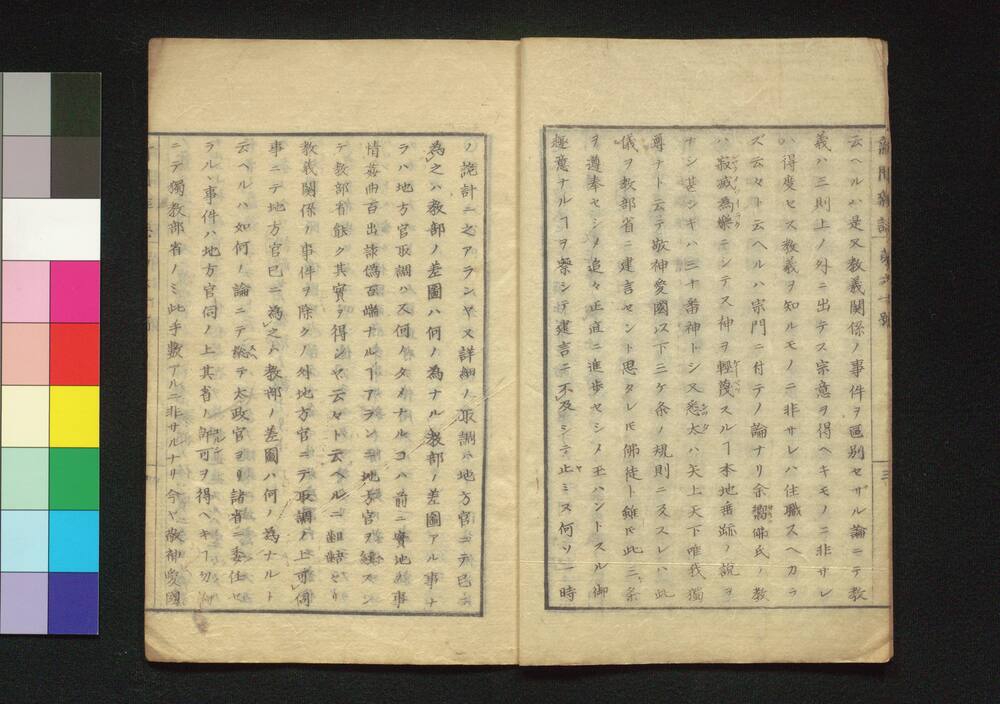 新聞雑誌 第六十號
三
云ヘルハ是又教義関係ノ事件ヲ區別セザル論ニテ教
義ハ三則上ノ外ニ出テス宗意ヲ得ヘキモノニ非サレ
ハ得度セス教義ヲ知ルモノニ非サレハ住職スヘカラ
ズ云々ト云ヘルハ宗門ニ付テノ論ナリ余嘗佛氏ノ教
ハ寂滅為樂ヲシテス神ヲ輕蔑スルヿ本地垂跡ノ説ヲ
ナシ甚シキハ三十番神トシ又悉太ハ天上天下唯我獨
尊ナト云テ敬神愛國以下三ケ条ノ規則ニ戻スレハ此
儀ヲ教部省ニ建言セント思タレ𪜈佛徒ト雖𪜈此三条
ヲ遵奉セシメ追々正道ニ進歩セシメ玉ハントスル御
趣意ナルヿヲ察シテ建言ニ不及シテ止ミヌ何ソ一時
ノ詭計ニ之アランヤ又詳細ノ取調ハ地方官ニテ已ニ
為之ハ教部ノ差圖ハ何ノ為ナル教部ノ差圖アル事ナ
ラハ地方官取調ハ又何ノタメナルコハ前ニ實地ノ事
情姦曲百出詐偽百端ナルヿアラン地方官ヲ経スシ
テ教部省能ク其實ヲ得ンヤ云々ト云ヘルニ齟齬セリ
教義関係ノ事件ヲ除クノ外地方官ニテ取調ノ上可伺
事ニテ地方官已ニ為之ハ教部ノ差圖ハ何ノ為ナルト
云ヘルハ如何ノ論ニテ総テ太政官ヨリ諸省ニ委任セ
ラル事件ハ地方官伺ノ上其省ノ許可ヲ得ヘキヿ勿論
ニテ獨教部省ノミ此手數アルニ非サルナリ今ヤ敬神愛國